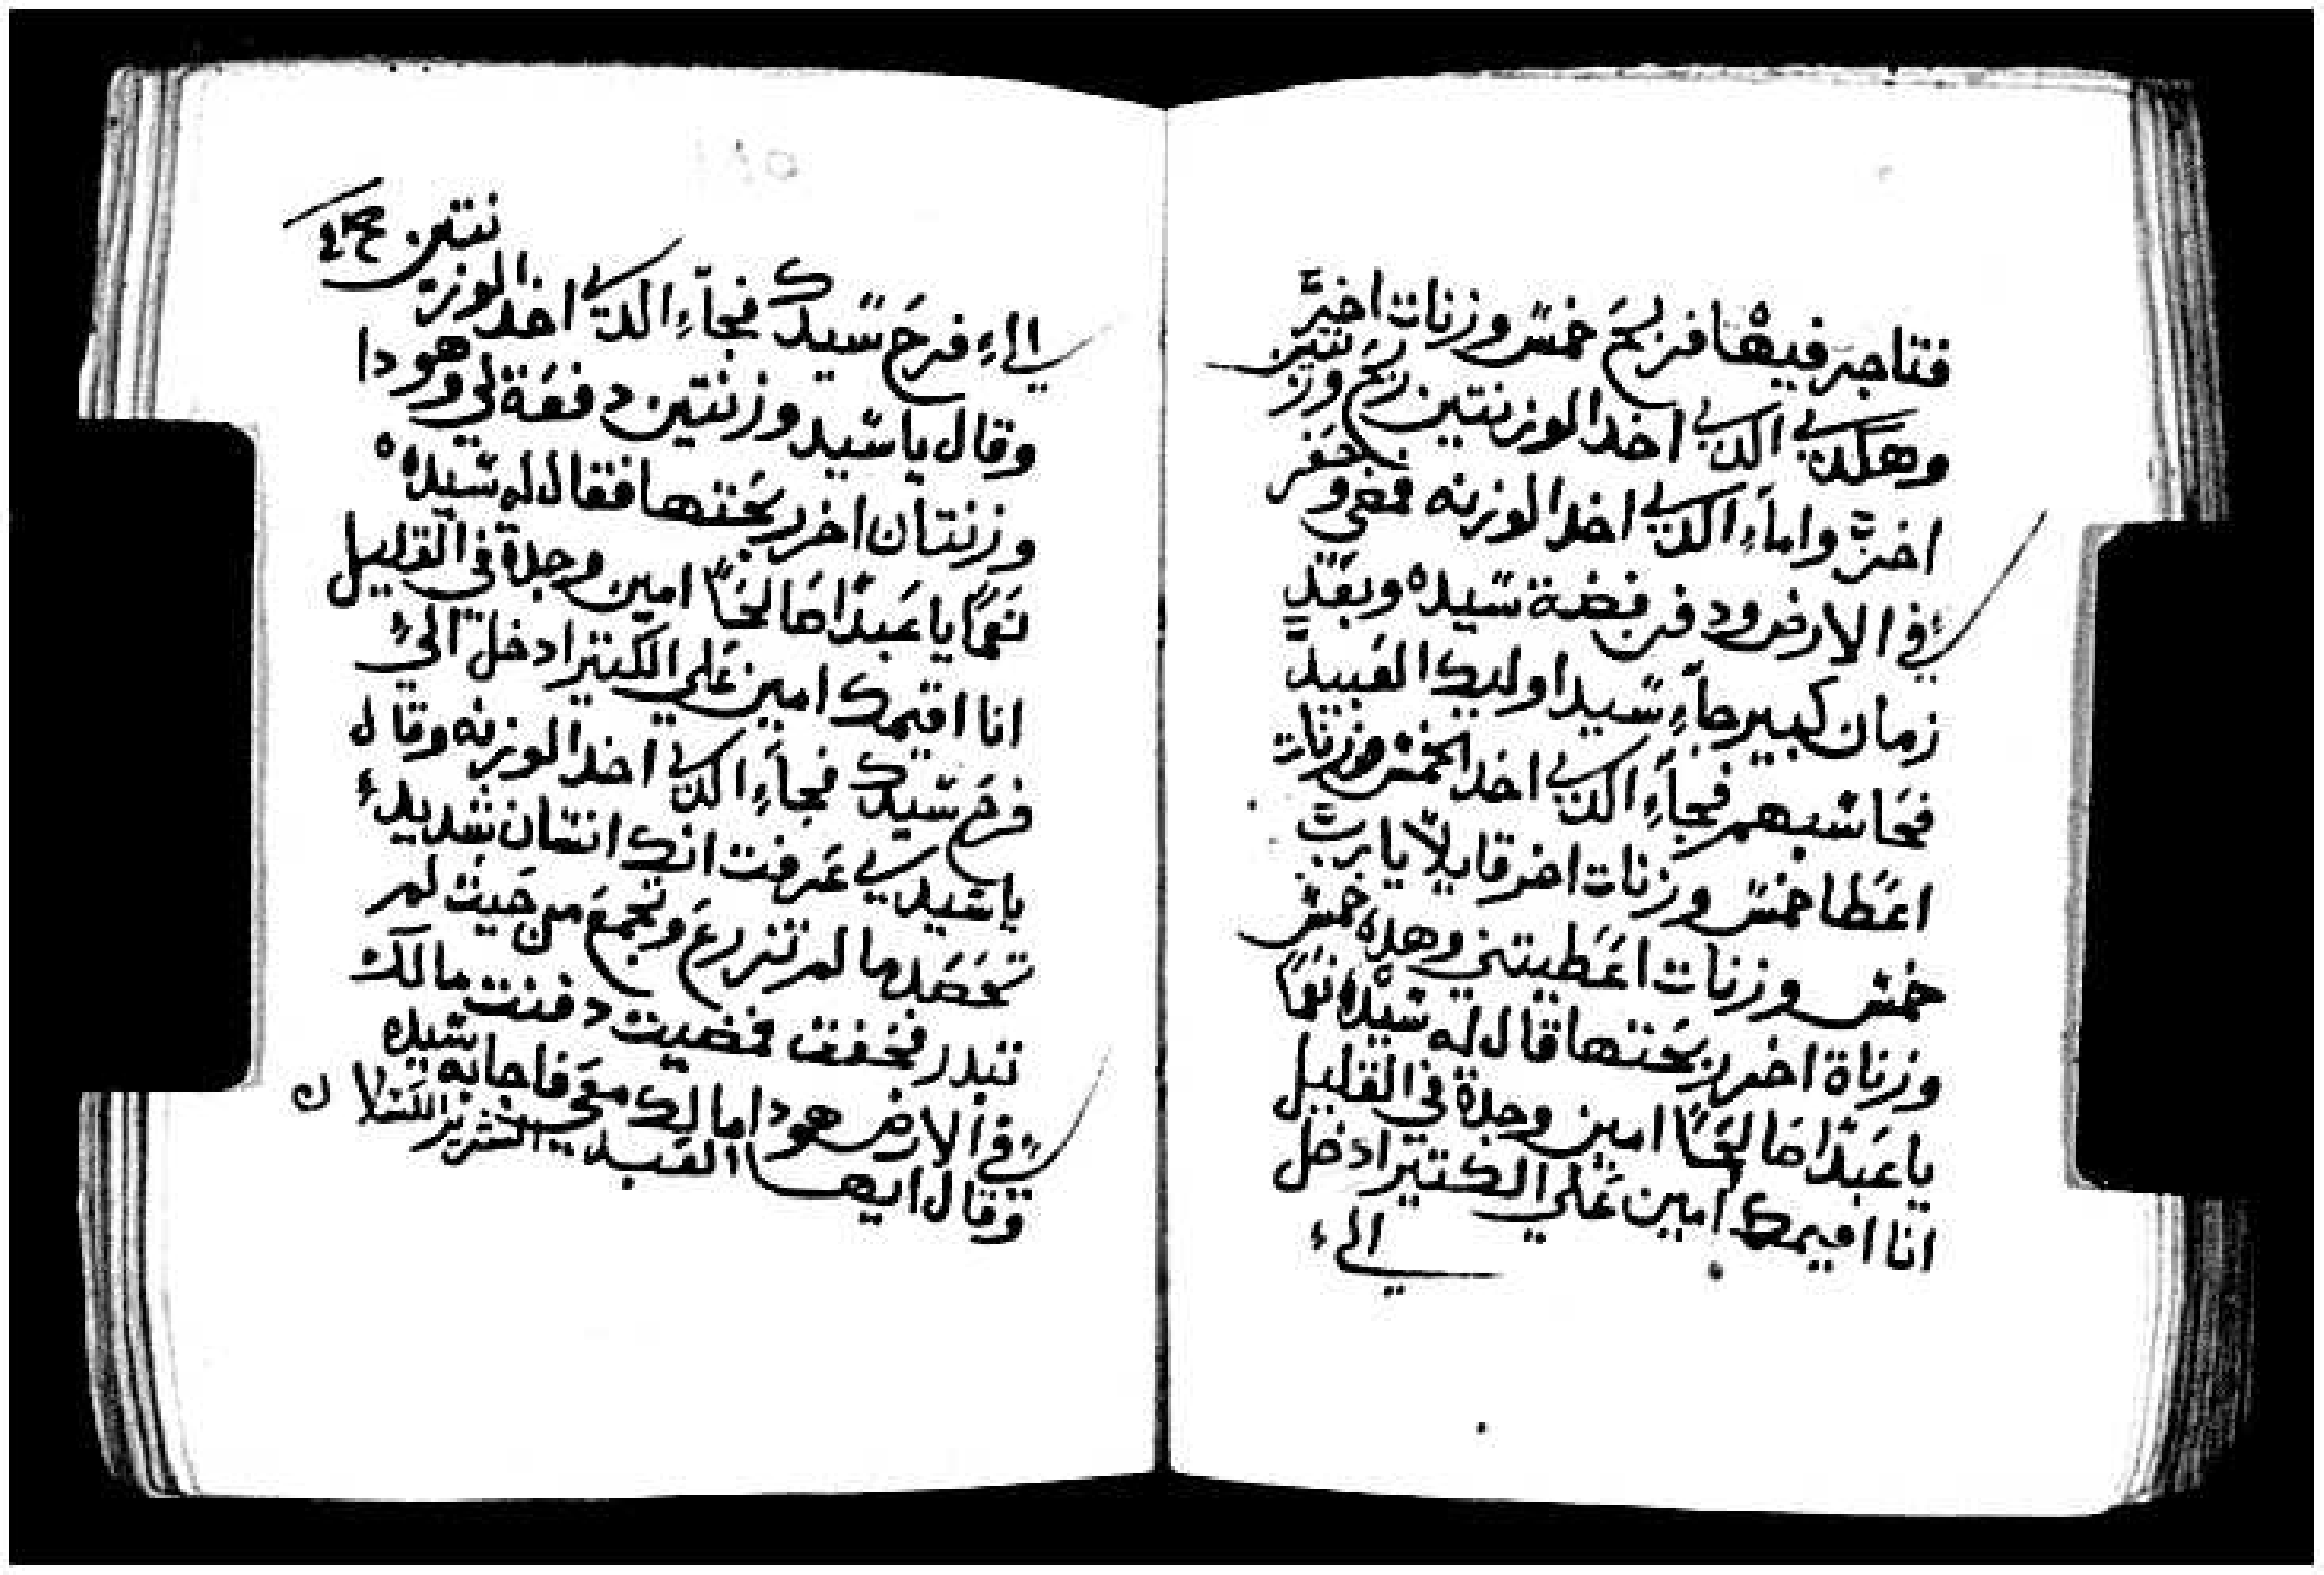 فتاجر فيها فربح خمس وزنات اخر
وهكدي الدي اخد الوزنتين ربح وزنتين
اخر واماء الدي اخد الوزنه فمضي وحفر
في الارض ودفن فضة سيده وبعد
زمان كبير جاء سيد اوليك العبيد
فحاسبهم فجاء الدي اخد الخمس وزنات
اعطا خمس وزنات اخر قايلا يارب
خمس وزنات اعطيتني وهده خمس
وزناة اخر ربحتها قال له سيده نعما
يا عبدا صالحا امين وجدة في القليل
انا اقيمك امين علي الكتير ادخل
الي
الي فرح سيدك فجاء الدي اخد الوزنتين
وقال يا سيد وزنتين دفعة لي وهودا
وزنتان اخر ربحتها فقال له سيده
نعما يا عبدا صالحا امين وجدة في القليل
انا اقيمك امين علي الكتير ادخل الي
فرح سيدك فجاء الدي اخد الوزنه وقال
يا سيدي عرفت انك انسان شديد
تحصد ما لم تزرع وتجمع من حيث لم
تبدر فخفت فمضيت دفنت مالك
في الارض هودا مالك معي فاجابه سيده
وقال ايها العبد الشرير الكسلان